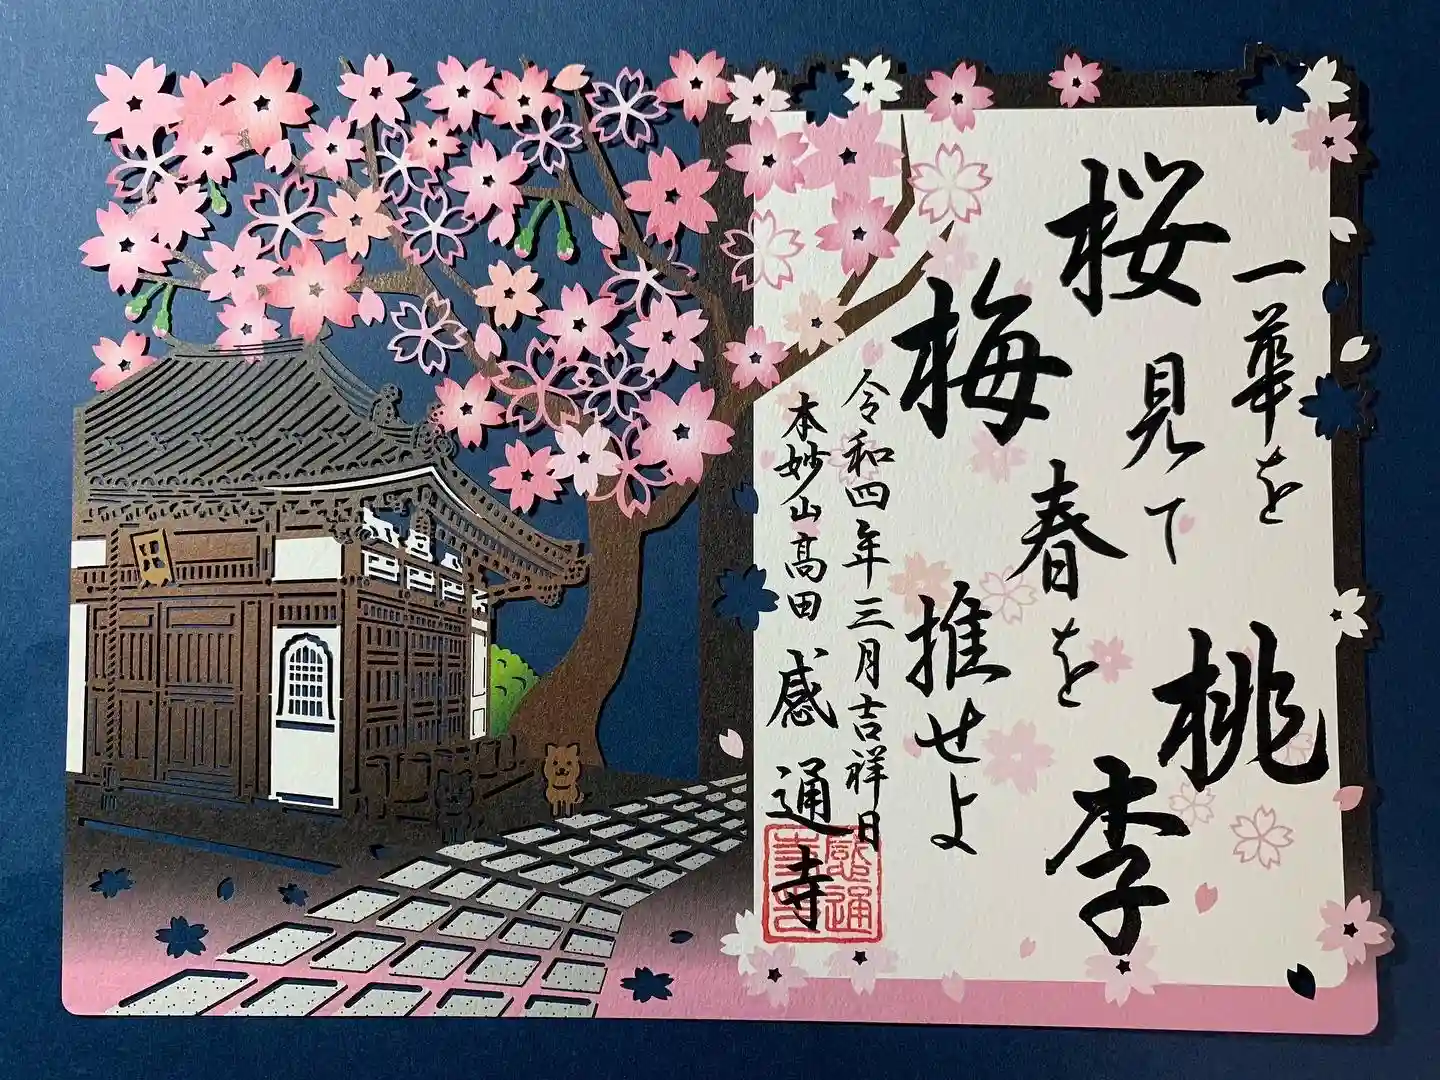 桜梅桃李
一華を
見て
春を
推せよ
令和四年三月吉祥日
本妙山高田感通寺